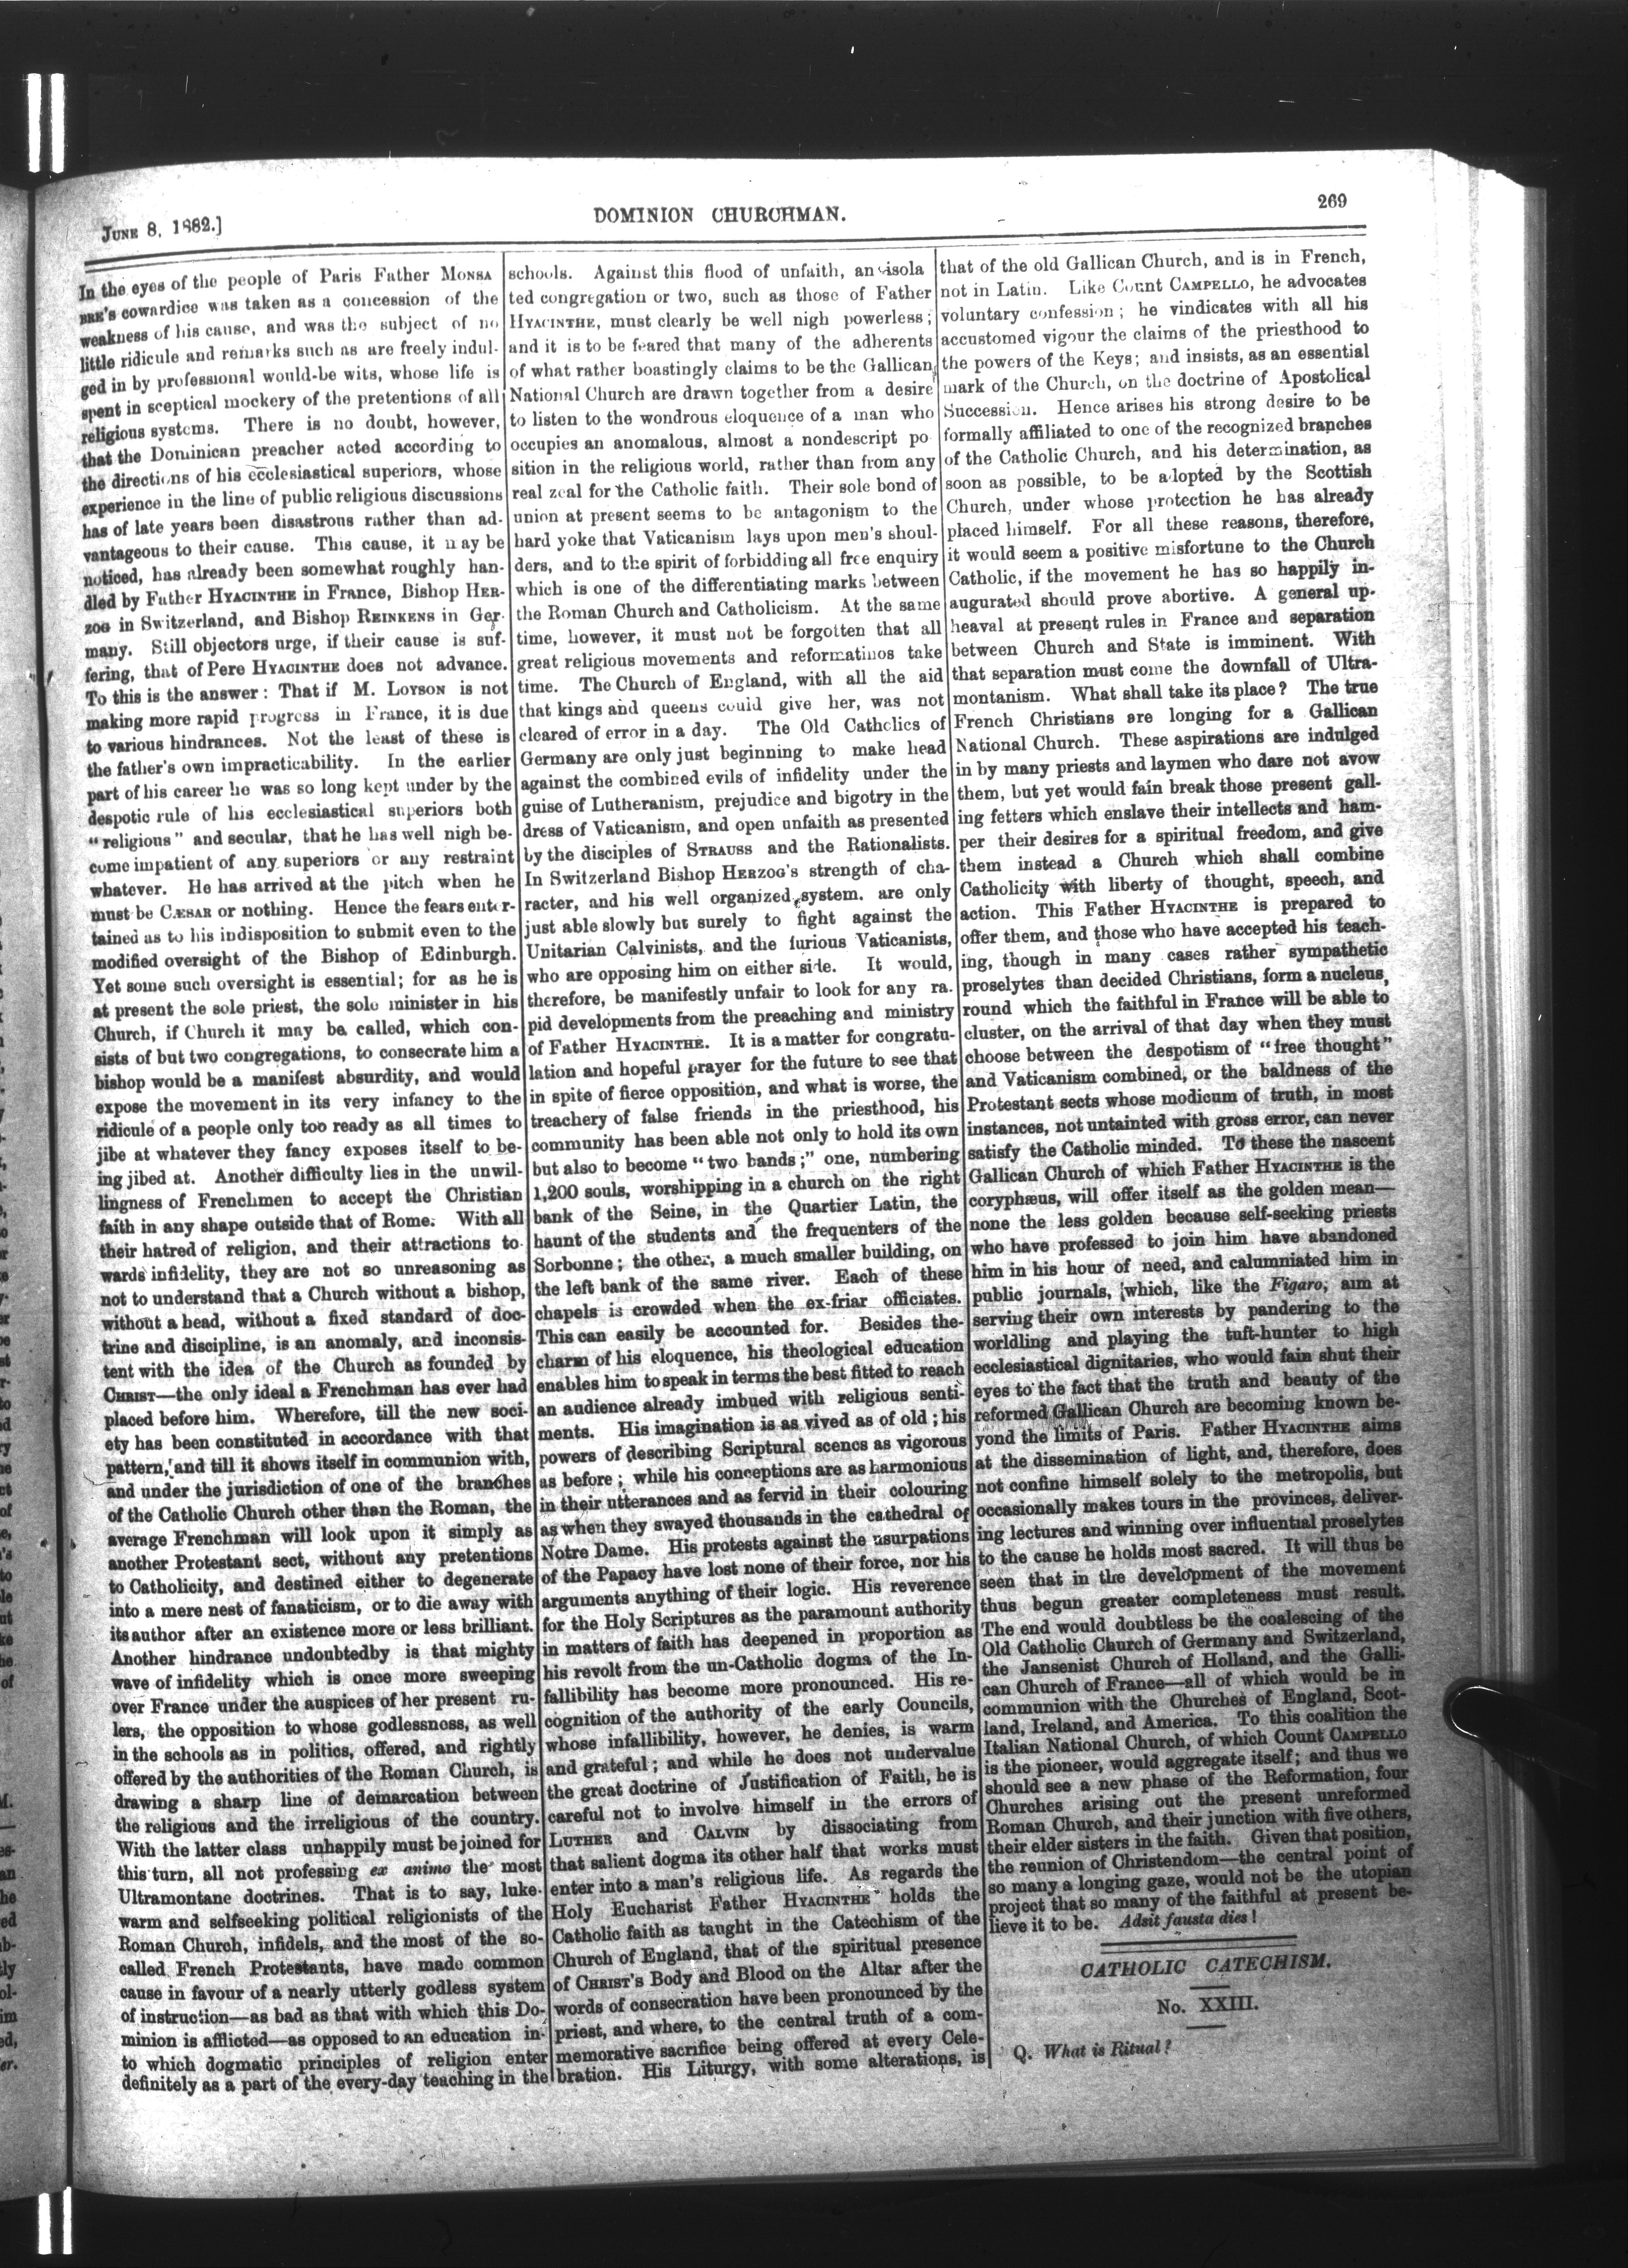 JUNE 8, 1882.]
DOMINION CHURCHMAN.
269
In the eyes of the people of Paris Father MONSA
BRE'S cowardice was taken as a concession of the
weakness of his cause, and was the subject of no
little ridicule and remarks such as are freely indul-
ged in by professional would-be wits, whose life is
spent in sceptical mockery of the pretentions of all
religious systems. There is no doubt, however,
that the Dominican preacher acted according to
the directions of his ecclesiastical superiors, whose
experience in the line of public religious discussions
has of late years been disastrous rather than ad-
vantageous to their cause. This cause, it may be
noticed, has already been somewhat roughly han-
dled by Father HYACINTHE in France, Bishop HER-
ZOG in Switzerland, and Bishop REINKENS in Ger-
many. Still objectors urge, if their cause is suf-
fering, that of Pere HYACINTHE does not advance.
To this is the answer: That if M. LOYSON is not
making more rapid progress in France, it is due
to various hindrances. Not the least of these is
the father's own impracticability. In the earlier
part of his career he was so long kept under by the
despotic rule of his ecclesiastical superiors both
"religious" and secular, that he has well nigh be-
come impatient of any superiors or any restraint
whatever. He has arrived at the pitch when he
must be CÆSAR or nothing. Hence the fears enter-
tained as to his indisposition to submit even to the
modified oversight of the Bishop of Edinburgh.
Yet some such oversight is essential; for as he is
at present the sole priest, the sole minister in his
Church, if Church it may be called, which con-
sists of but two congregations, to consecrate him a
bishop would be a manifest absurdity, and would
expose the movement in its very infancy to the
ridicule of a people only too ready as all times to
jibe at whatever they fancy exposes itself to be-
ing jibed at. Another difficulty lies in the unwil-
lingness of Frenchmen to accept the Christian
faith in any shape outside that of Rome. With all
their hatred of religion, and their attractions to-
wards infidelity, they are not so unreasoning as
not to understand that a Church without a bishop,
without a head, without a fixed standard of doc-
trine and discipline, is an anomaly, and inconsis-
tent with the idea of the Church as founded by
CHRIST—the only ideal a Frenchman has ever had
placed before him. Wherefore, till the new soci-
ety has been constituted in accordance with that
pattern, and till it shows itself in communion with,
and under the jurisdiction of one of the branches
of the Catholic Church other than the Roman, the
average Frenchman will look upon it simply as
another Protestant sect, without any pretentions
to Catholicity, and destined either to degenerate
into a mere nest of fanaticism, or to die away with
its author after an existence more or less brilliant.
Another hindrance undoubtedby is that mighty
wave of infidelity which is once more sweeping
over France under the auspices of her present ru-
lers, the opposition to whose godlessness, as well
in the schools as in politics, offered, and rightly
offered by the authorities of the Roman Church, is
drawing a sharp line of demarcation between
the religious and the irreligious of the country.
With the latter class unhappily must be joined for
this turn, all not professing ex animo the most
Ultramontane doctrines. That is to say, luke-
warm and selfseeking political religionists of the
Roman Church, infidels, and the most of the so-
called French Protestants, have made common
cause in favour of a nearly utterly godless system
of instruction—as bad as that with which this Do-
minion is afflicted—as opposed to an education in-
to which dogmatic principles of religion enter
definitely as a part of the every-day teaching in the
schools. Against this flood of unfaith, an isola
ted congregation or two, such as those of Father
HYACINTHE, must clearly be well nigh powerless;
and it is to be feared that many of the adherents
of what rather boastingly claims to be the Gallican
National Church are drawn together from a desire
to listen to the wondrous eloquence of a man who
occupies an anomalous, almost a nondescript po
sition in the religious world, rather than from any
real zeal for the Catholic faith. Their sole bond of
union at present seems to be antagonism to the
hard yoke that Vaticanism lays upon men's shoul-
ders, and to the spirit of forbidding all free enquiry
which is one of the differentiating marks between
the Roman Church and Catholicism. At the same
time, however, it must not be forgotten that all
great religious movements and reformatinos take
time. The Church of England, with all the aid
that kings and queens could give her, was not
cleared of error in a day. The Old Catholics of
Germany are only just beginning to make head
against the combined evils of infidelity under the
guise of Lutheranism, prejudice and bigotry in the
dress of Vaticanism, and open unfaith as presented
by the disciples of STRAUSS and the Rationalists.
In Switzerland Bishop HERZOG'S strength of cha-
racter, and his well organized system. are only
just able slowly but surely to fight against the
Unitarian Calvinists, and the furious Vaticanists,
who are opposing him on either side. It would,
therefore, be manifestly unfair to look for any ra-
pid developments from the preaching and ministry
of Father HYACINTHE. It is a matter for congratu-
lation and hopeful prayer for the future to see that
in spite of fierce opposition, and what is worse, the
treachery of false friends in the priesthood, his
community has been able not only to hold its own
but also to become "two bands;" one, numbering
1,200 souls, worshipping in a church on the right
bank of the Seine, in the Quartier Latin, the
haunt of the students and the frequenters of the
Sorbonne; the other, a much smaller building, on
the left bank of the same river. Each of these
chapels is crowded when the ex-friar officiates.
This can easily be accounted for. Besides the
charm of his eloquence, his theological education
enables him to speak in terms the best fitted to reach
an audience already imbued with religious senti-
ments. His imagination is as vived as of old; his
powers of describing Scriptural scenes as vigorous
as before; while his conceptions are as harmonious
in their utterances and as fervid in their colouring
as when they swayed thousands in the cathedral of
Notre Dame. His protests against the usurpations
of the Papacy have lost none of their force, nor his
arguments anything of their logic. His reverence
for the Holy Scriptures as the paramount authority
in matters of faith has deepened in proportion as
his revolt from the un-Catholic dogma of the In-
fallibility has become more pronounced. His re-
cognition of the authority of the early Councils,
whose infallibility, however, he denies, is warm
and grateful; and while he does not undervalue
the great doctrine of Justification of Faith, he is
careful not to involve himself in the errors of
LUTHER and CALVIN by dissociating from
that salient dogma its other half that works must
enter into a man's religious life. As regards the
Holy Eucharist Father HYACINTHE holds the
Catholic faith as taught in the Catechism of the
Church of England, that of the spiritual presence
of CHRIST'S Body and Blood on the Altar after the
words of consecration have been pronounced by the
priest, and where, to the central truth of a com-
memorative sacrifice being offered at every Cele-
bration. His Liturgy, with some alterations, is
that of the old Gallican Church, and is in French,
not in Latin. Like Count CAMPELLO, he advocates
voluntary confession; he vindicates with all his
accustomed vigour the claims of the priesthood to
the powers of the Keys; and insists, as an essential
mark of the Church, on the doctrine of Apostolical
Succession. Hence arises his strong desire to be
formally affiliated to one of the recognized branches
of the Catholic Church, and his determination, as
soon as possible, to be adopted by the Scottish
Church, under whose protection he has already
placed himself. For all these reasons, therefore,
it would seem a positive misfortune to the Church
Catholic, if the movement he has so happily in-
augurated should prove abortive. A general up-
heaval at present rules in France and separation
between Church and State is imminent. With
that separation must come the downfall of Ultra-
montanism. What shall take its place? The true
French Christians are longing for a Gallican
National Church. These aspirations are indulged
in by many priests and laymen who dare not avow
them, but yet would fain break those present gall-
ing fetters which enslave their intellects and ham-
per their desires for a spiritual freedom, and give
them instead a Church which shall combine
Catholicity with liberty of thought, speech, and
action. This Father HYACINTHE is prepared to
offer them, and those who have accepted his teach-
ing, though in many cases rather sympathetic
proselytes than decided Christians, form a nucleus,
round which the faithful in France will be able to
cluster, on the arrival of that day when they must
choose between the despotism of "free thought"
and Vaticanism combined, or the baldness of the
Protestant sects whose modicum of truth, in most
instances, not untainted with gross error, can never
satisfy the Catholic minded. To these the nascent
Gallican Church of which Father HYACINTHE is the
coryphæus, will offer itself as the golden mean—
none the less golden because self-seeking priests
who have professed to join him have abandoned
him in his hour of need, and calumniated him in
public journals, which, like the Figaro, aim at
serving their own interests by pandering to the
worldling and playing the tuft-hunter to high
ecclesiastical dignitaries, who would fain shut their
eyes to the fact that the truth and beauty of the
reformed Gallican Church are becoming known be-
yond the limits of Paris. Father HYACINTHE aims
at the dissemination of light, and, therefore, does
not confine himself solely to the metropolis, but
occasionally makes tours in the provinces, deliver-
ing lectures and winning over influential proselytes
to the cause he holds most sacred. It will thus be
seen that in the development of the movement
thus begun greater completeness must result.
The end would doubtless be the coalescing of the
Old Catholic Church of Germany and Switzerland,
the Jansenist Church of Holland, and the Galli-
can Church of France—all of which would be in
communion with the Churches of England, Scot-
land, Ireland, and America. To this coalition the
Italian National Church, of which Count CAMPELLO
is the pioneer, would aggregate itself; and thus we
should see a new phase of the Reformation, four
Churches arising out the present unreformed
Roman Church, and their junction with five others,
their elder sisters in the faith. Given that position,
the reunion of Christendom—the central point of
so many a longing gaze, would not be the utopian
project that so many of the faithful at present be-
lieve it to be. Adsit fausta dies!
CATHOLIC CATECHISM.
No. XXIII.
Q. What is Ritual?